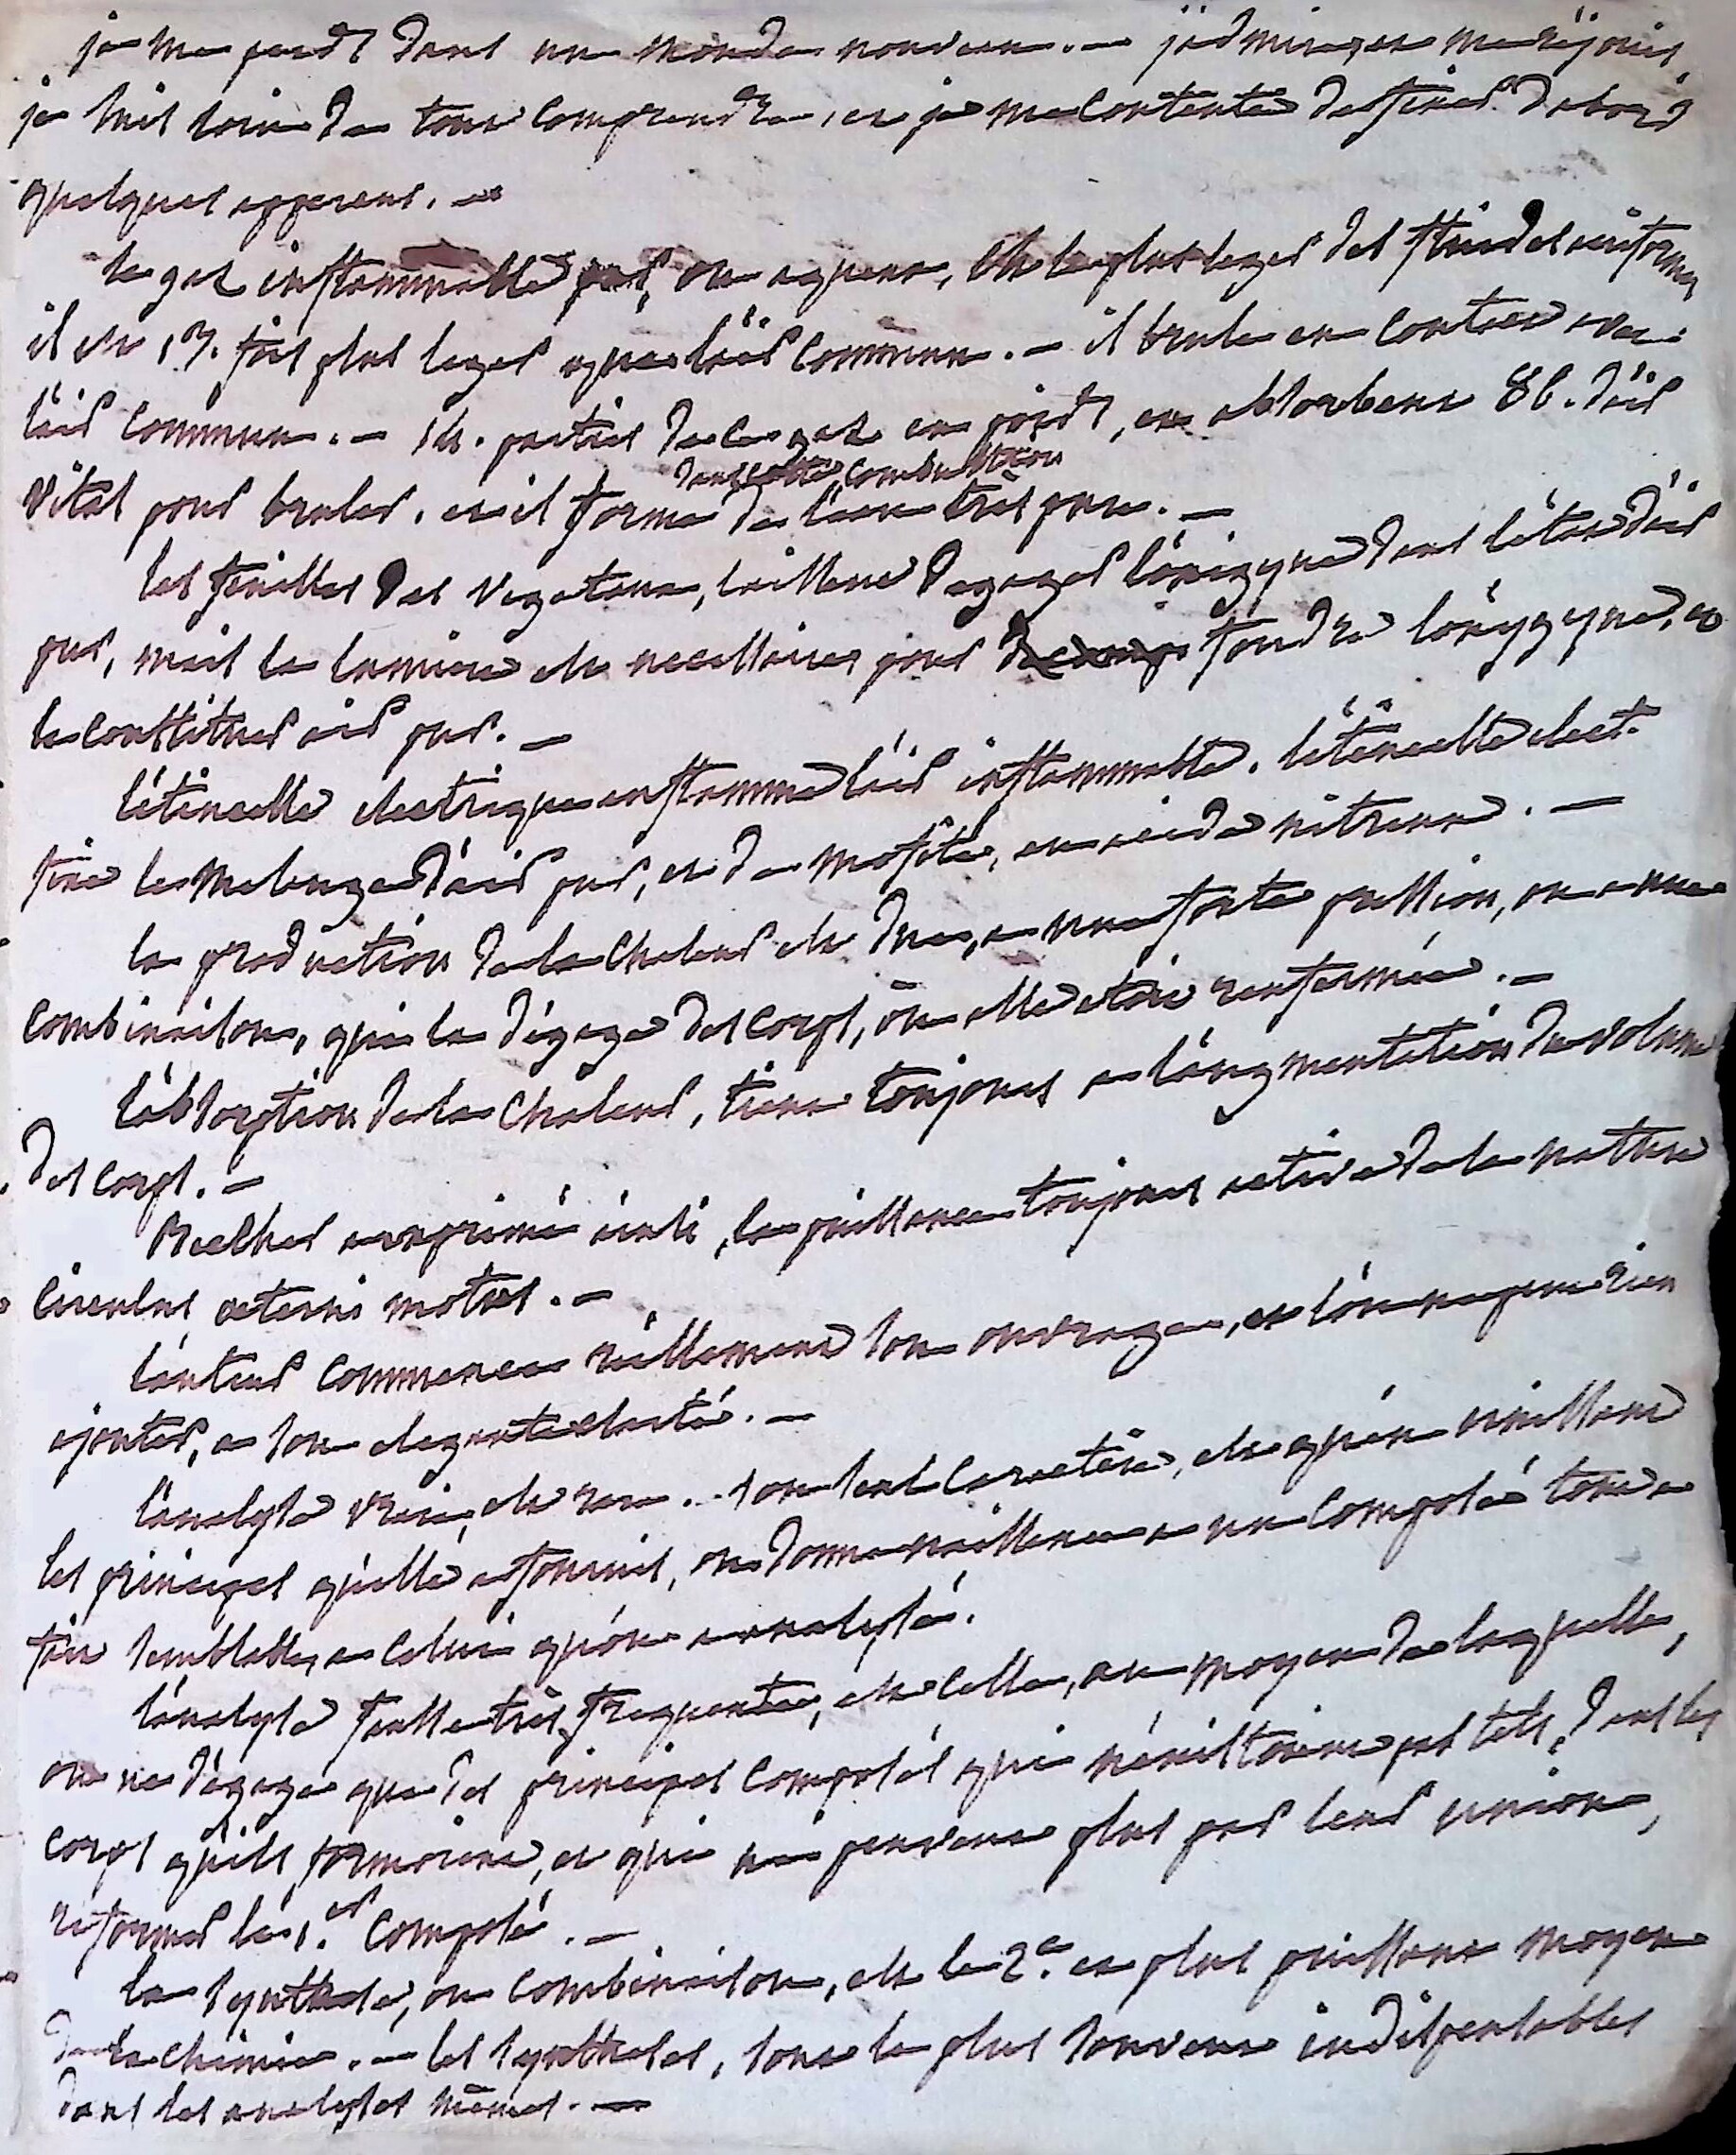 je me perds dans un monde nouveau. — j'admire, et me réjouis,
je suis loin de tout comprendre, et je me contente de fixer d'abord
quelques apperçus. —
le gaz inflammable pur, ou aqueux, est le plus leger des fluides aëriformes
il est 13. fois plus leger que l'air commun. — il brule en contact avec
l'air commun. — 14. parties de ce gaz en poids, en absorbent 86. d'air
vital pour bruler, et il forme dans cette combustion de l'eau très pure. —
les feuilles des vegetaux, laissent degager l'oxigyne dans l'état d'air
pur, mais la lumiere est necessaire, pour fondre l'oxygyne, et
le constituer air pur. —
l'étincelle electrique enflamme l'air inflammable. l'étincelle elect.
fixe le melange d'air pur, et de mofete, en acide nitreux. —
la production de la chaleur est due, a une forte pression, ou a une
combinaison, qui la dégage des corps, ou elle etoit renfermée. —
l'absorption de la chaleur, tient toujours a l'augmentation du volume
des corps. —
Beccher a exprimé ainsi, la puissance toujours active de la nature
circulus aeterni motus. —
l'auteur commence réellement son ouvrage, et l'on ne peut rien
ajouter, a son elegante clarté. —
l'analyse vraie, est rare. — son seul caractère, est qu'en unissant
les principes qu'elle a fournis, on donne naissance a un composé tout a
fait semblable, a celui qu'on a analysé.
l'analyse fausse très frequente, est celle, au moyen de laquelle,
on ne dégage que des principes composés qui n'éxistoient pas tels, dans les
corps qu'ils formoient, et qui ne peuvent plus par leur union,
reformer le 1.er composé. —
la synthese, ou combinaison, est le 2.e et plus puissant moyen
de la chimie. — les syntheses, sont le plus souvent indispensables
dans les analyses mêmes. —